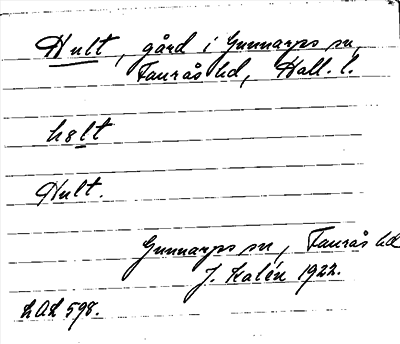 Hult, gård i Gunnarps sn,
Faurås hd, Hall. l.
hɞlt
Hult.
Gunnarps sn, Faurås hd
J. Kalén 1922.
LAL 598.